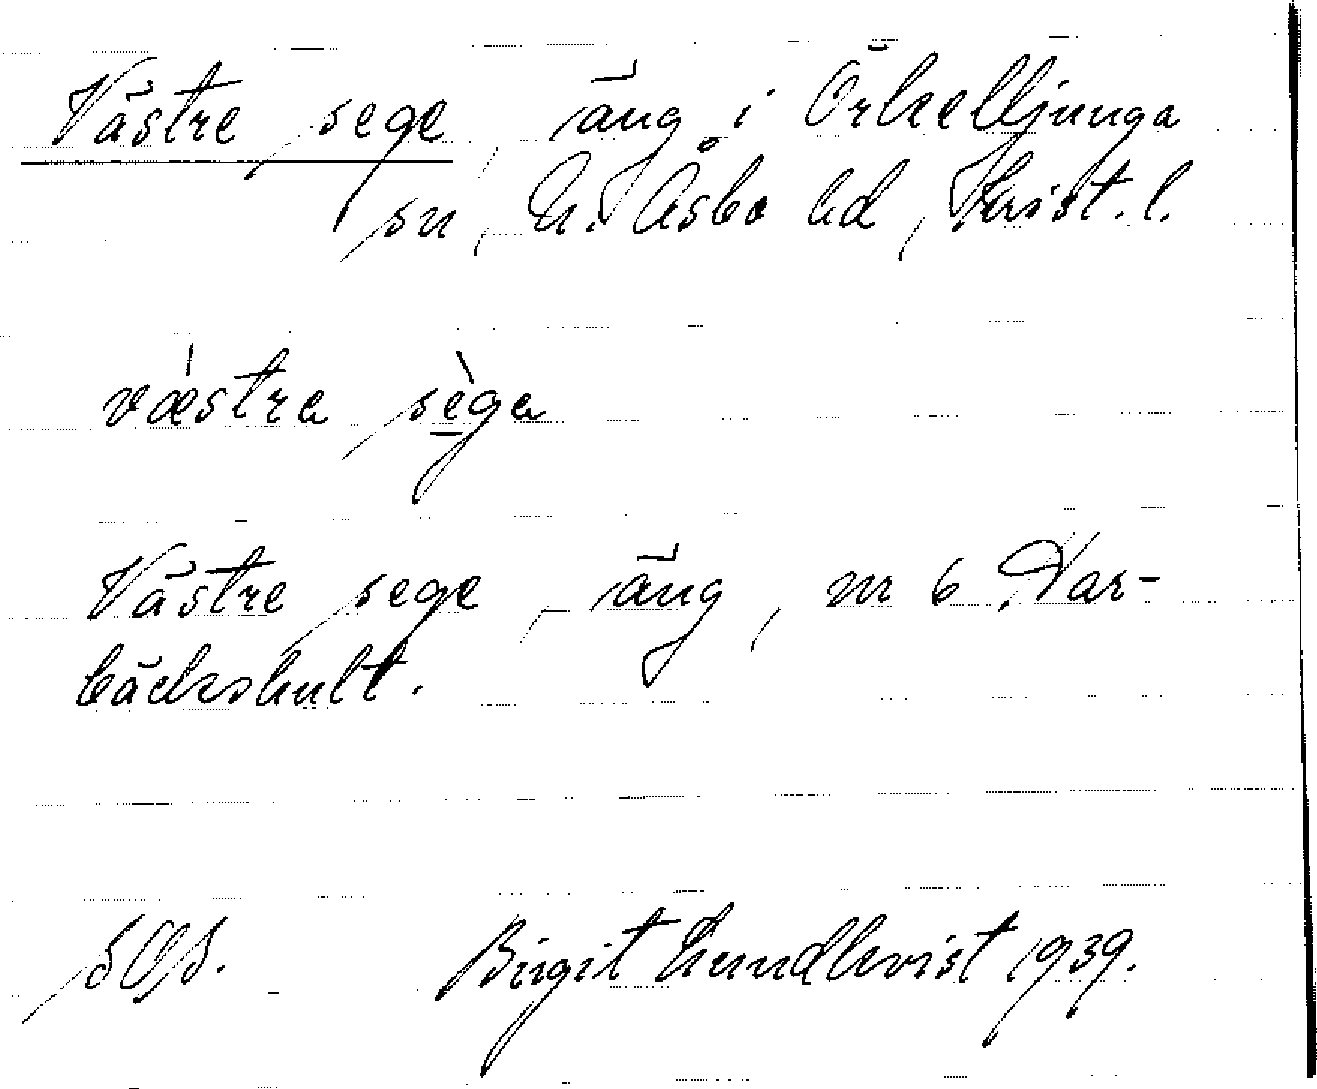 Västre sege, äng i Örkelljunga
sn, N. Åsbo hd, Krist. l.
vǽstra sè̱ga
Västre sege, äng, nr 6 Har-
bäckshult.
SOS. Birgit Lundkvist 1939.